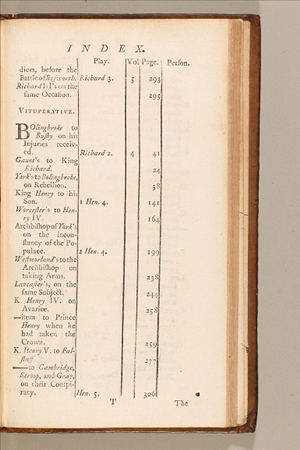 INDEX.
Play. Vol Page. Person.
diers, before the
Battle of Bosworth. Richard 3. 5 293
Richard III's on the
same Occasion. 295
VITUPERATIVE.
Bolingbroke to
Bushy on his
Injuries receiv-
ed. Richard 2. 4 41
Gaunt's to King
Richard. 24
York's to Bolingbroke,
on Rebellion. 38
King Henry to his
Son. 1 Hen. 4. 141
Worcester's to Hen-
ry IV. 164
Archbishop of York's
on the incon-
stancy of the Po-
pulace. 2 Hen. 4. 199
Westmorland's to the
Archbishop on
taking Arms. 238
Lancaster's, on the
same Subject. 244
K. Henry IV. on
Avarice. 258
—item to Prince
Henry when he
had taken the
Crown. 259
K. Henry V. to Fal-
staff. 277
——to Cambridge,
Scroop, and Gray,
on their Conspi-
racy. Hen. 5. 306
T The